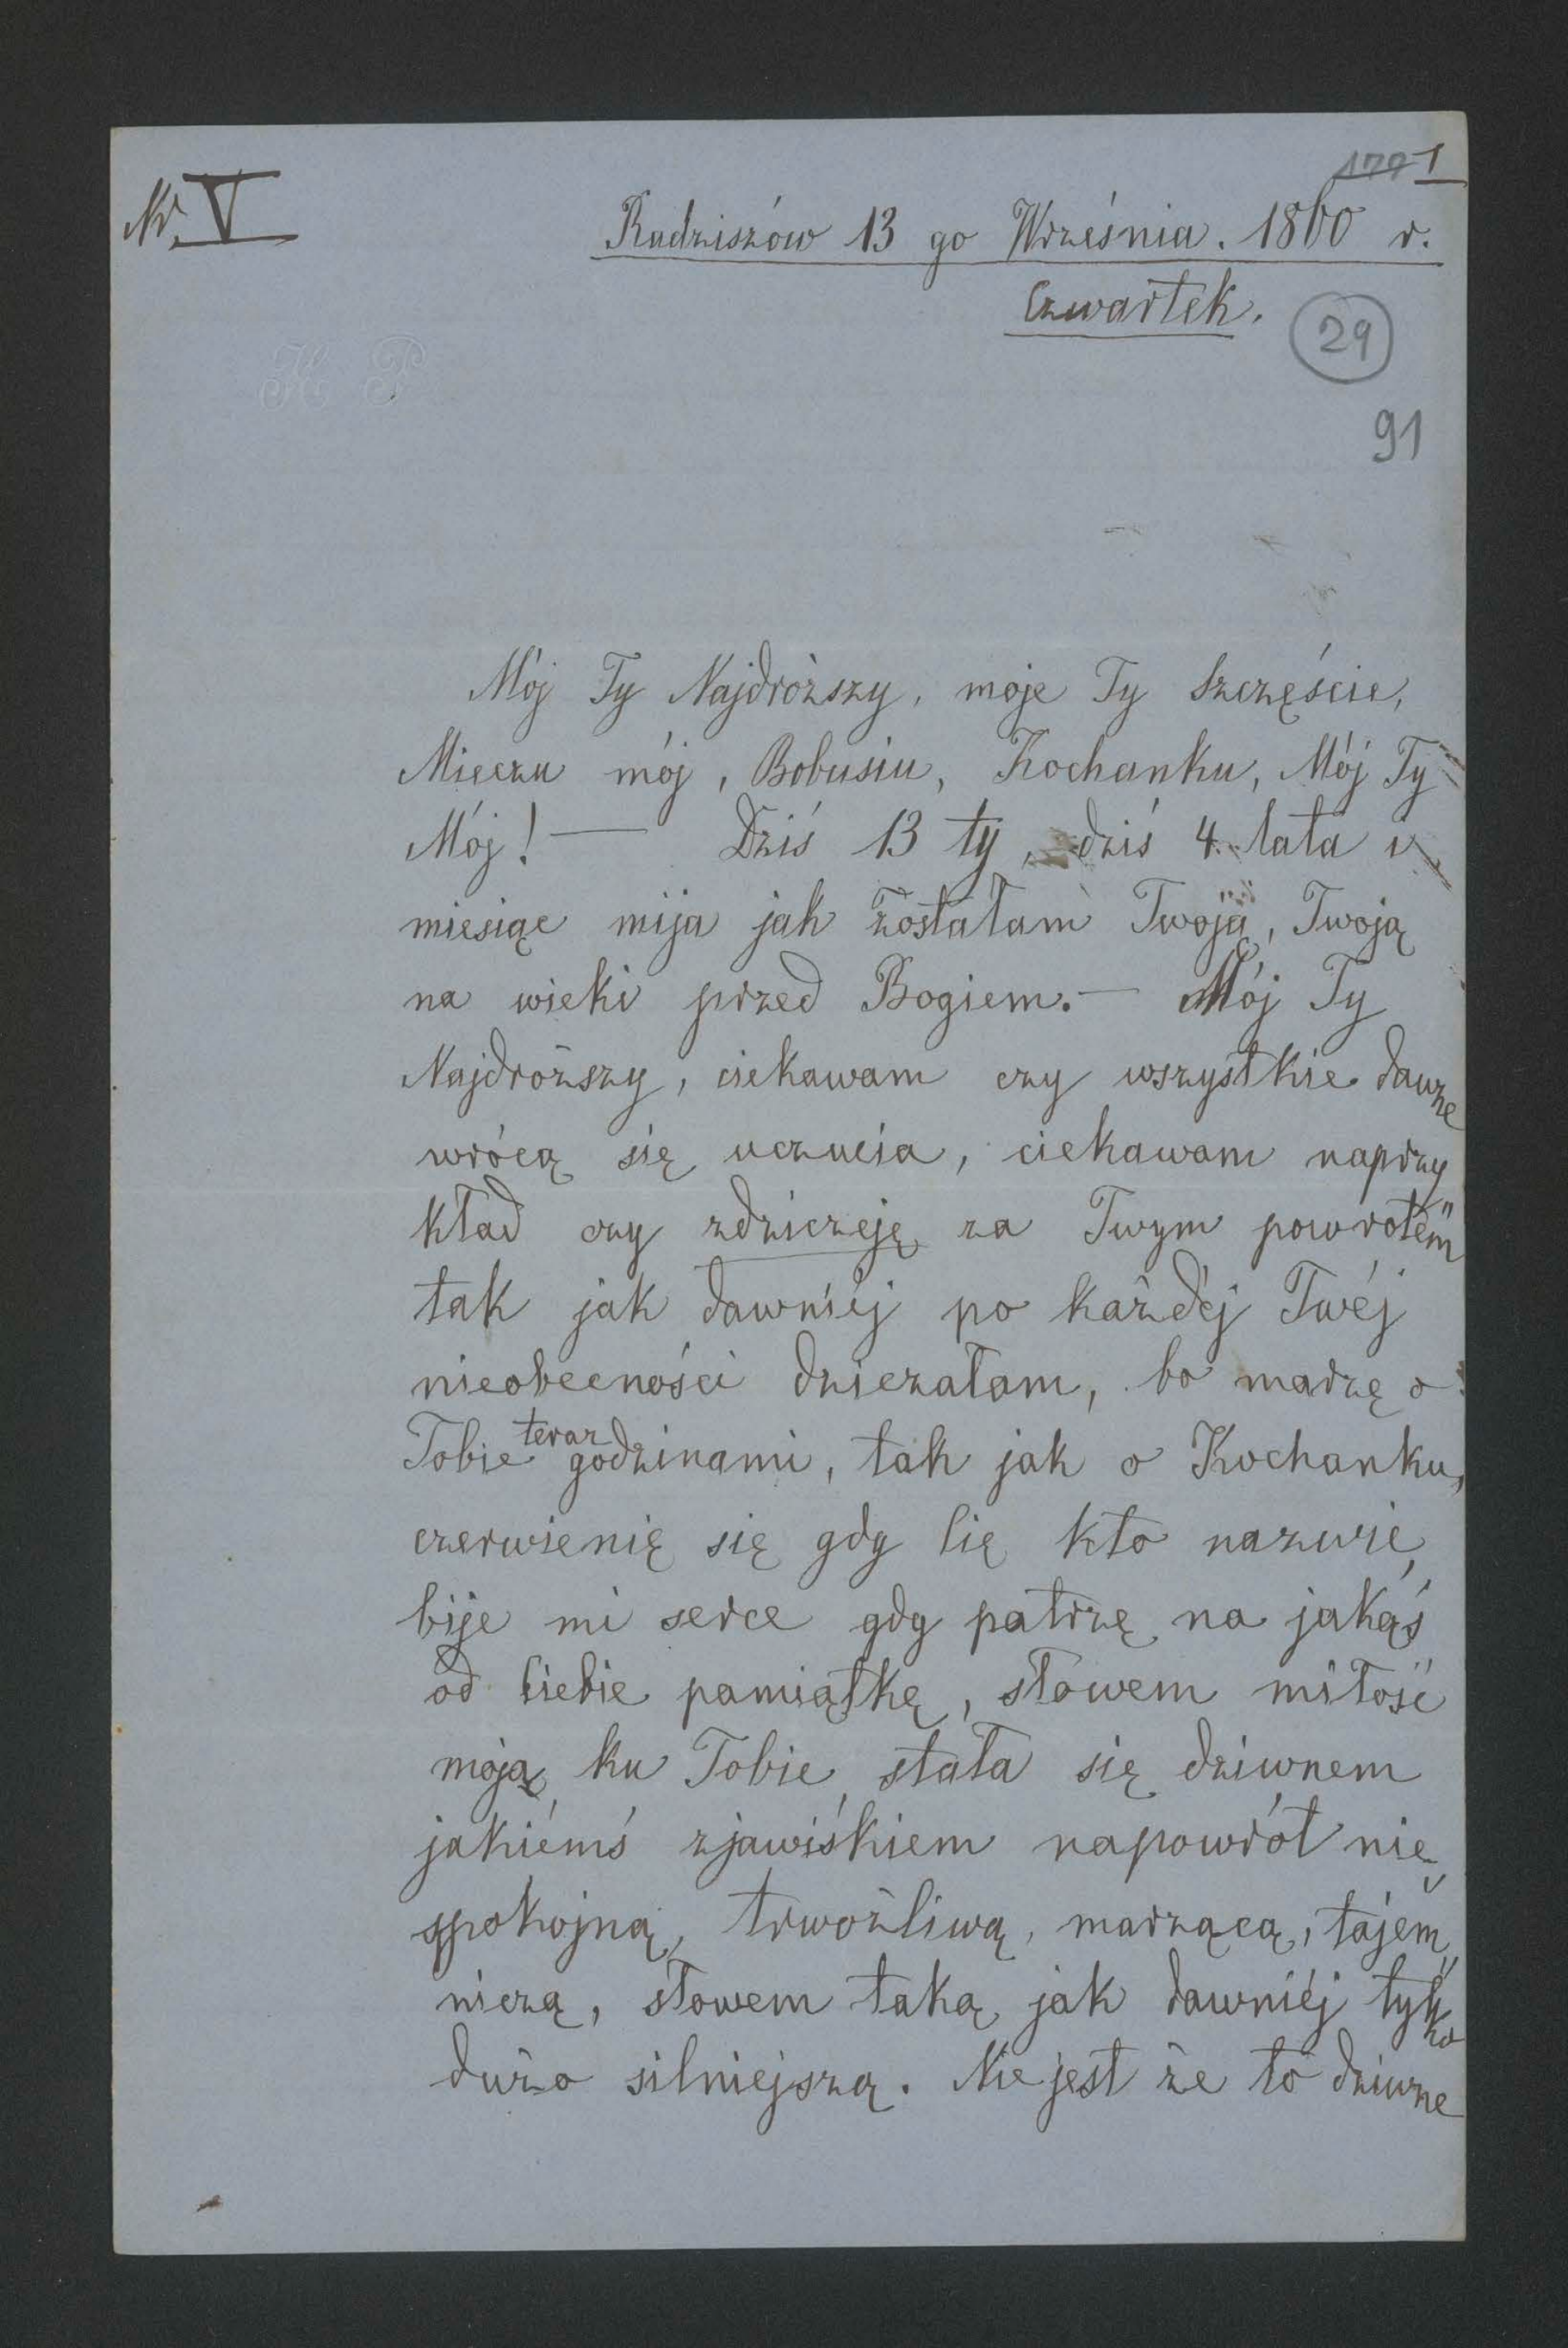 Nr. V
1
Radziszów 13 go Września. 1860 r.
Czwartek.
29
H P
91
Mój Ty Najdroższy, moje Ty Szczęście,
Mieczu mój, Bobusiu, Kochanku, Mój Ty
Mój! — Dziś 13 ty, dziś 4. lata i
miesiąc mija jak zostałam Twoją, Twoją
na wieki przed Bogiem. — Mój Ty
Najdroższy, ciekawam czy wszystkie dawne
wrócą się uczucia, ciekawam naprzy
kład czy zdziczeję za Twym powrotem
tak jak dawniéj po każdéj Twéj
nieobecności dziczałam, bo marzę o
Tobie teraz godzinami, tak jak o Kochanku,
czerwienię się gdy Cię kto nazwie,
bije mi serce gdy patrzę na jakąś
od Ciebie pamiątkę, słowem miłość
moja, ku Tobie, stała się dziwnem
jakiémś zjawiśkiem napowrót nie„
spokojną, trwożliwą, marzącą, tajem„
niczą, słowem taką jak dawniéj tylko
dużo silniejszą. Nie jest że to dziwne